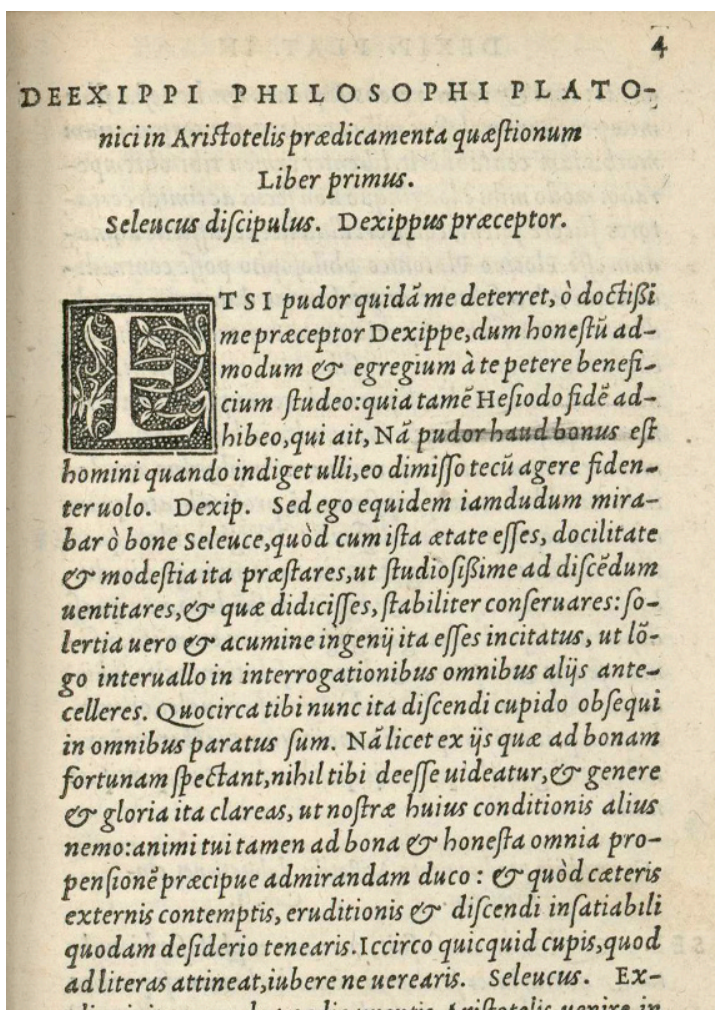 4
DEEXIPPI PHILOSOPHI PLATO-
nici in Aristotelis prædicamenta quæstionum
Liber primus.
Seleucus discipulus. Dexippus præceptor.
ETSI pudor quidā me deterret, ò doctißi
me præceptor Dexippe, dum honestū ad-
modum & egregium à te petere benefi-
cium studeo: quia tamē Hesiodo fidē ad-
hibeo, qui ait, Nā pudor haud bonus est
homini quando indiget ulli, eo dimisso tecū agere fiden-
ter uolo. Dexip. Sed ego equidem iamdudum mira-
bar ò bone Seleuce, quòd cum ista ætate esses, docilitate
& modestia ita præstares, ut studiosißime ad discēdum
uentitares, & quæ didicisses, stabiliter conseruares: so-
lertia uero & acumine ingenij ita esses incitatus, ut lō-
go interuallo in interrogationibus omnibus alijs ante-
celleres. Quocirca tibi nunc ita discendi cupido obsequi
in omnibus paratus sum. Nā licet ex ijs quæ ad bonam
fortunam spectant, nihil tibi deesse uideatur, & genere
& gloria ita clareas, ut nostræ huius conditionis alius
nemo: animi tui tamen ad bona & honesta omnia pro-
pensionē præcipue admirandam duco: & quòd cæteris
externis contemptis, eruditionis & discendi insatiabili
quodam desiderio tenearis. Iccirco quicquid cupis, quod
ad literas attineat, iubere ne uerearis. Seleucus. Ex-
Aristotelis uenire in